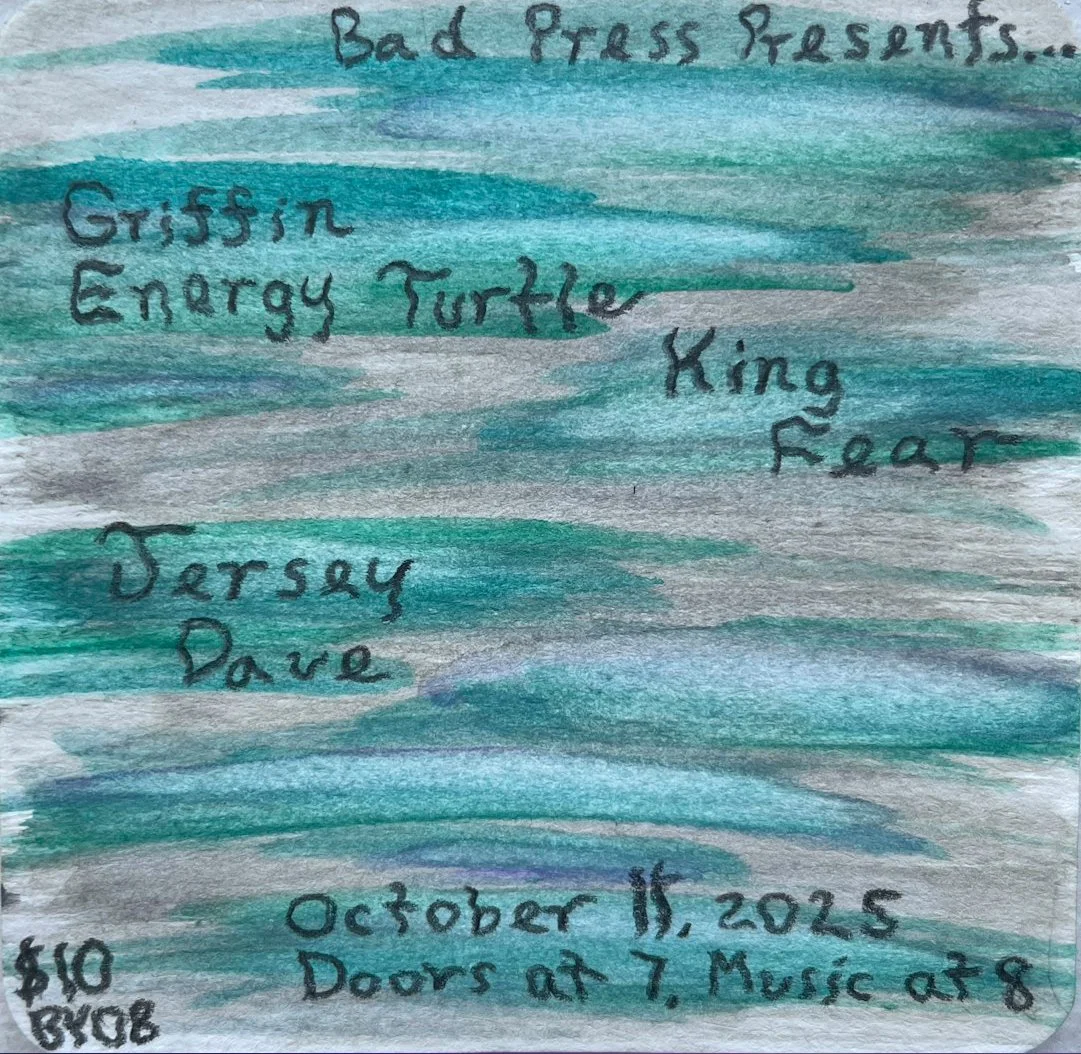 Bad Press Presents...
Griffin
Energy Turtle
King
Fear
Jersey
Dave
October 2025
Doors at 7, Music at 8
$10
BYOB